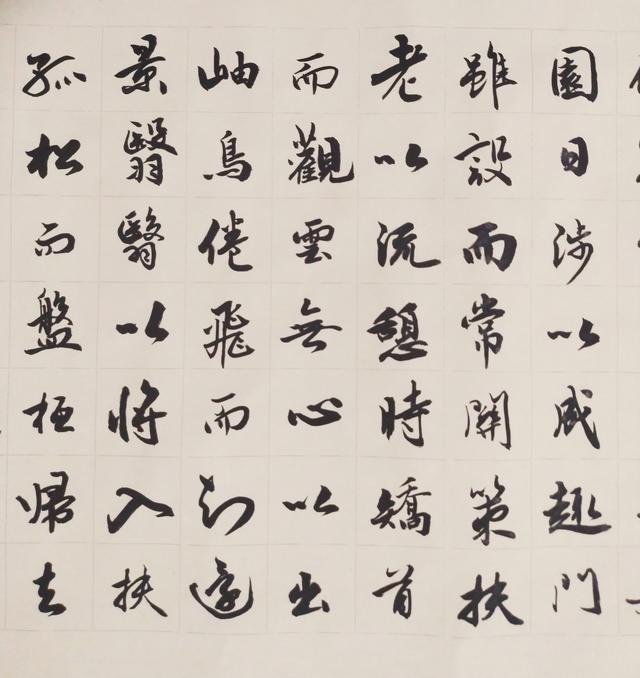 園日涉以成趣門
雖設而常關策扶
老以流憩時矯首
而觀雲無心以出
岫鳥倦飛而知還
景翳翳以將入扶
孤松而盤桓歸去